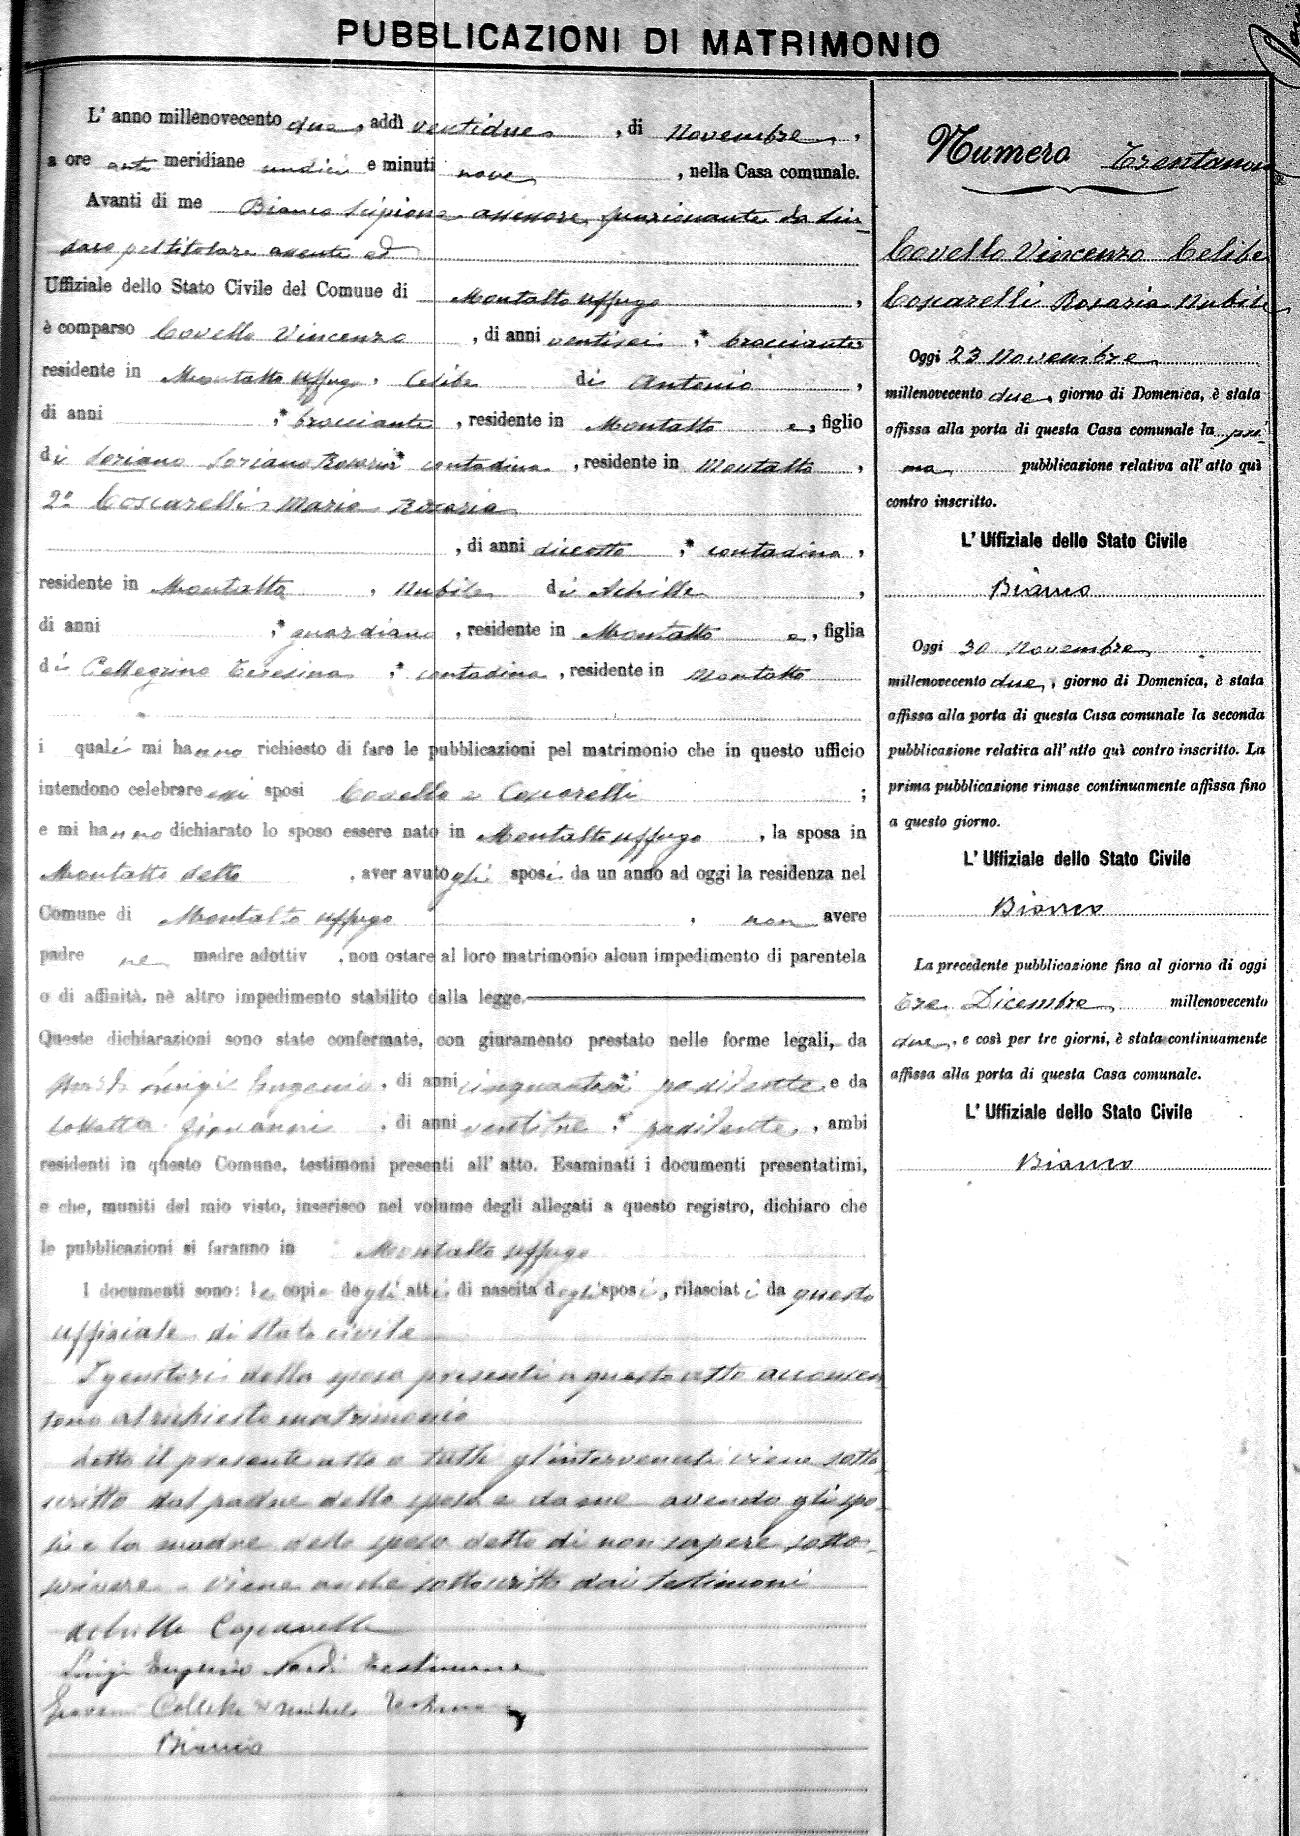 PUBBLICAZIONI DI MATRIMONIO
L' anno millenovecento due, addì ventidue, di Novembre,
a ore anti meridiane undici e minuti nove, nella Casa comunale.
Avanti di me Bianco Scipione assessore funzionante da Sin-
daco pel titolare assente ed
Uffiziale dello Stato Civile del Comune di Montalto Uffugo,
è comparso Covello Vincenzo, di anni ventisei, * bracciante
residente in Montalto Uffugo, Celibe di Antonio,
di anni , * bracciante, residente in Montalto e, figlio
di Soriano Rosaria * contadina, residente in Montalto,
2º Coscarelli Maria Rosaria
, di anni diciotto, * contadina,
residente in Montalto, Nubile di Achille,
di anni , * guardiano, residente in Montalto e, figlia
di Pellegrino Teresina, * contadina, residente in Montalto
i quali mi hanno richiesto di fare le pubblicazioni pel matrimonio che in questo ufficio
intendono celebrare essi sposi Covello e Coscarelli ;
e mi hanno dichiarato lo sposo essere nato in Montalto Uffugo, la sposa in
Montalto detto, aver avuto gli sposi da un anno ad oggi la residenza nel
Comune di Montalto Uffugo, non avere
padre ne madre adottiv , non ostare al loro matrimonio alcun impedimento di parentela
o di affinità, nè altro impedimento stabilito dalla legge.
Queste dichiarazioni sono state confermate, con giuramento prestato nelle forme legali, da
Nardi Luigi Eugenio, di anni * possidente e da
Giovanni, di anni ventitre, * possidente, ambi
residenti in questo Comune, testimoni presenti all' atto. Esaminati i documenti presentatimi,
e che, muniti del mio visto, inserisco nel volume degli allegati a questo registro, dichiaro che
le pubblicazioni si faranno in Montalto Uffugo
I documenti sono: le copie degli atti di nascita degli sposi, rilasciati da questo
uffiziale di stato civile
I genitori della sposa presenti a questo atto acconsen
tono al richiesto matrimonio
Letto il presente atto a tutti gl'intervenuti viene sotto
scritto dal padre della sposa e da me avendo gli spo-
si e la madre della sposa detto di non sapere sotto-
scrivere. Viene anche sottoscritto dai testimoni
Achille Coscarelli
Luigi Eugenio Nardi testimone
Bianco
Numero Trentanove
Covello Vincenzo Celibe
Coscarelli Rosaria Nubile
Oggi 23 Novembre
millenovecento due, giorno di Domenica, è stata
affissa alla porta di questa Casa comunale la pri-
ma pubblicazione relativa all' atto quì
contro inscritto.
L' Uffiziale dello Stato Civile
Bianco
Oggi 30 Novembre
millenovecento due, giorno di Domenica, è stata
affissa alla porta di questa Casa comunale la seconda
pubblicazione relativa all' atto quì contro inscritto. La
prima pubblicazione rimase continuamente affissa fino
a questo giorno.
L' Uffiziale dello Stato Civile
Bianco
La precedente pubblicazione fino al giorno di oggi
Tre Dicembre millenovecento
due, e così per tre giorni, è stata continuamente
affissa alla porta di questa Casa comunale.
L' Uffiziale dello Stato Civile
Bianco